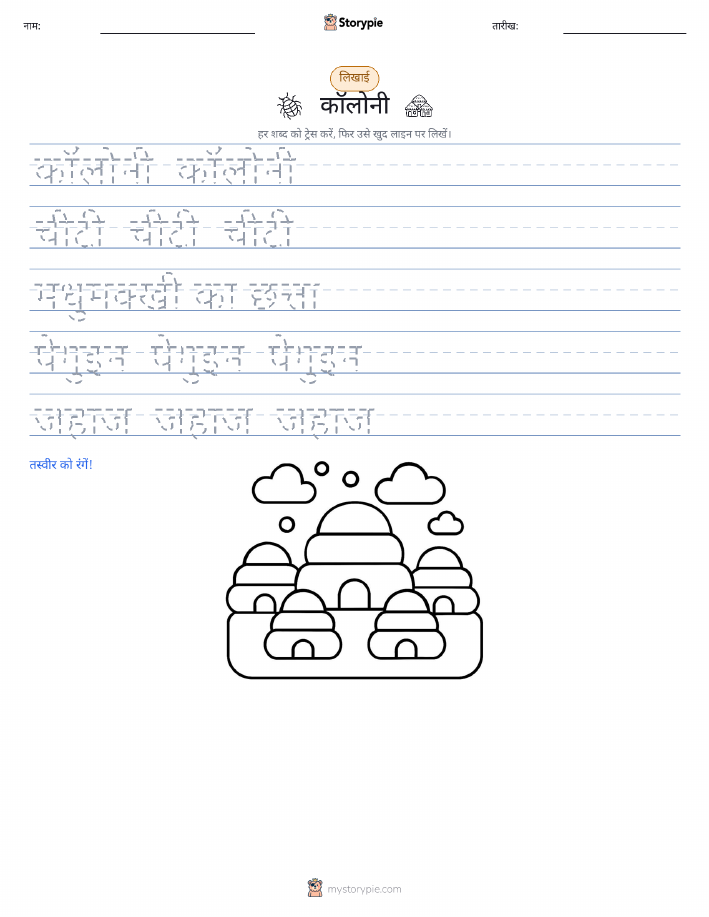 नाम:
Storypie
तारीख:
लिखाई
कॉलोनी
हर शब्द को ट्रेस करें, फिर उसे खुद लाइन पर लिखें।
कॉलोनी कॉलोनी
चींटी चींटी चींटी
मधुमक्खी का छत्ता
पेंगुइन पेंगुइन पेंगुइन
जहाज जहाज जहाज
तस्वीर को रंगें!
mystorypie.com